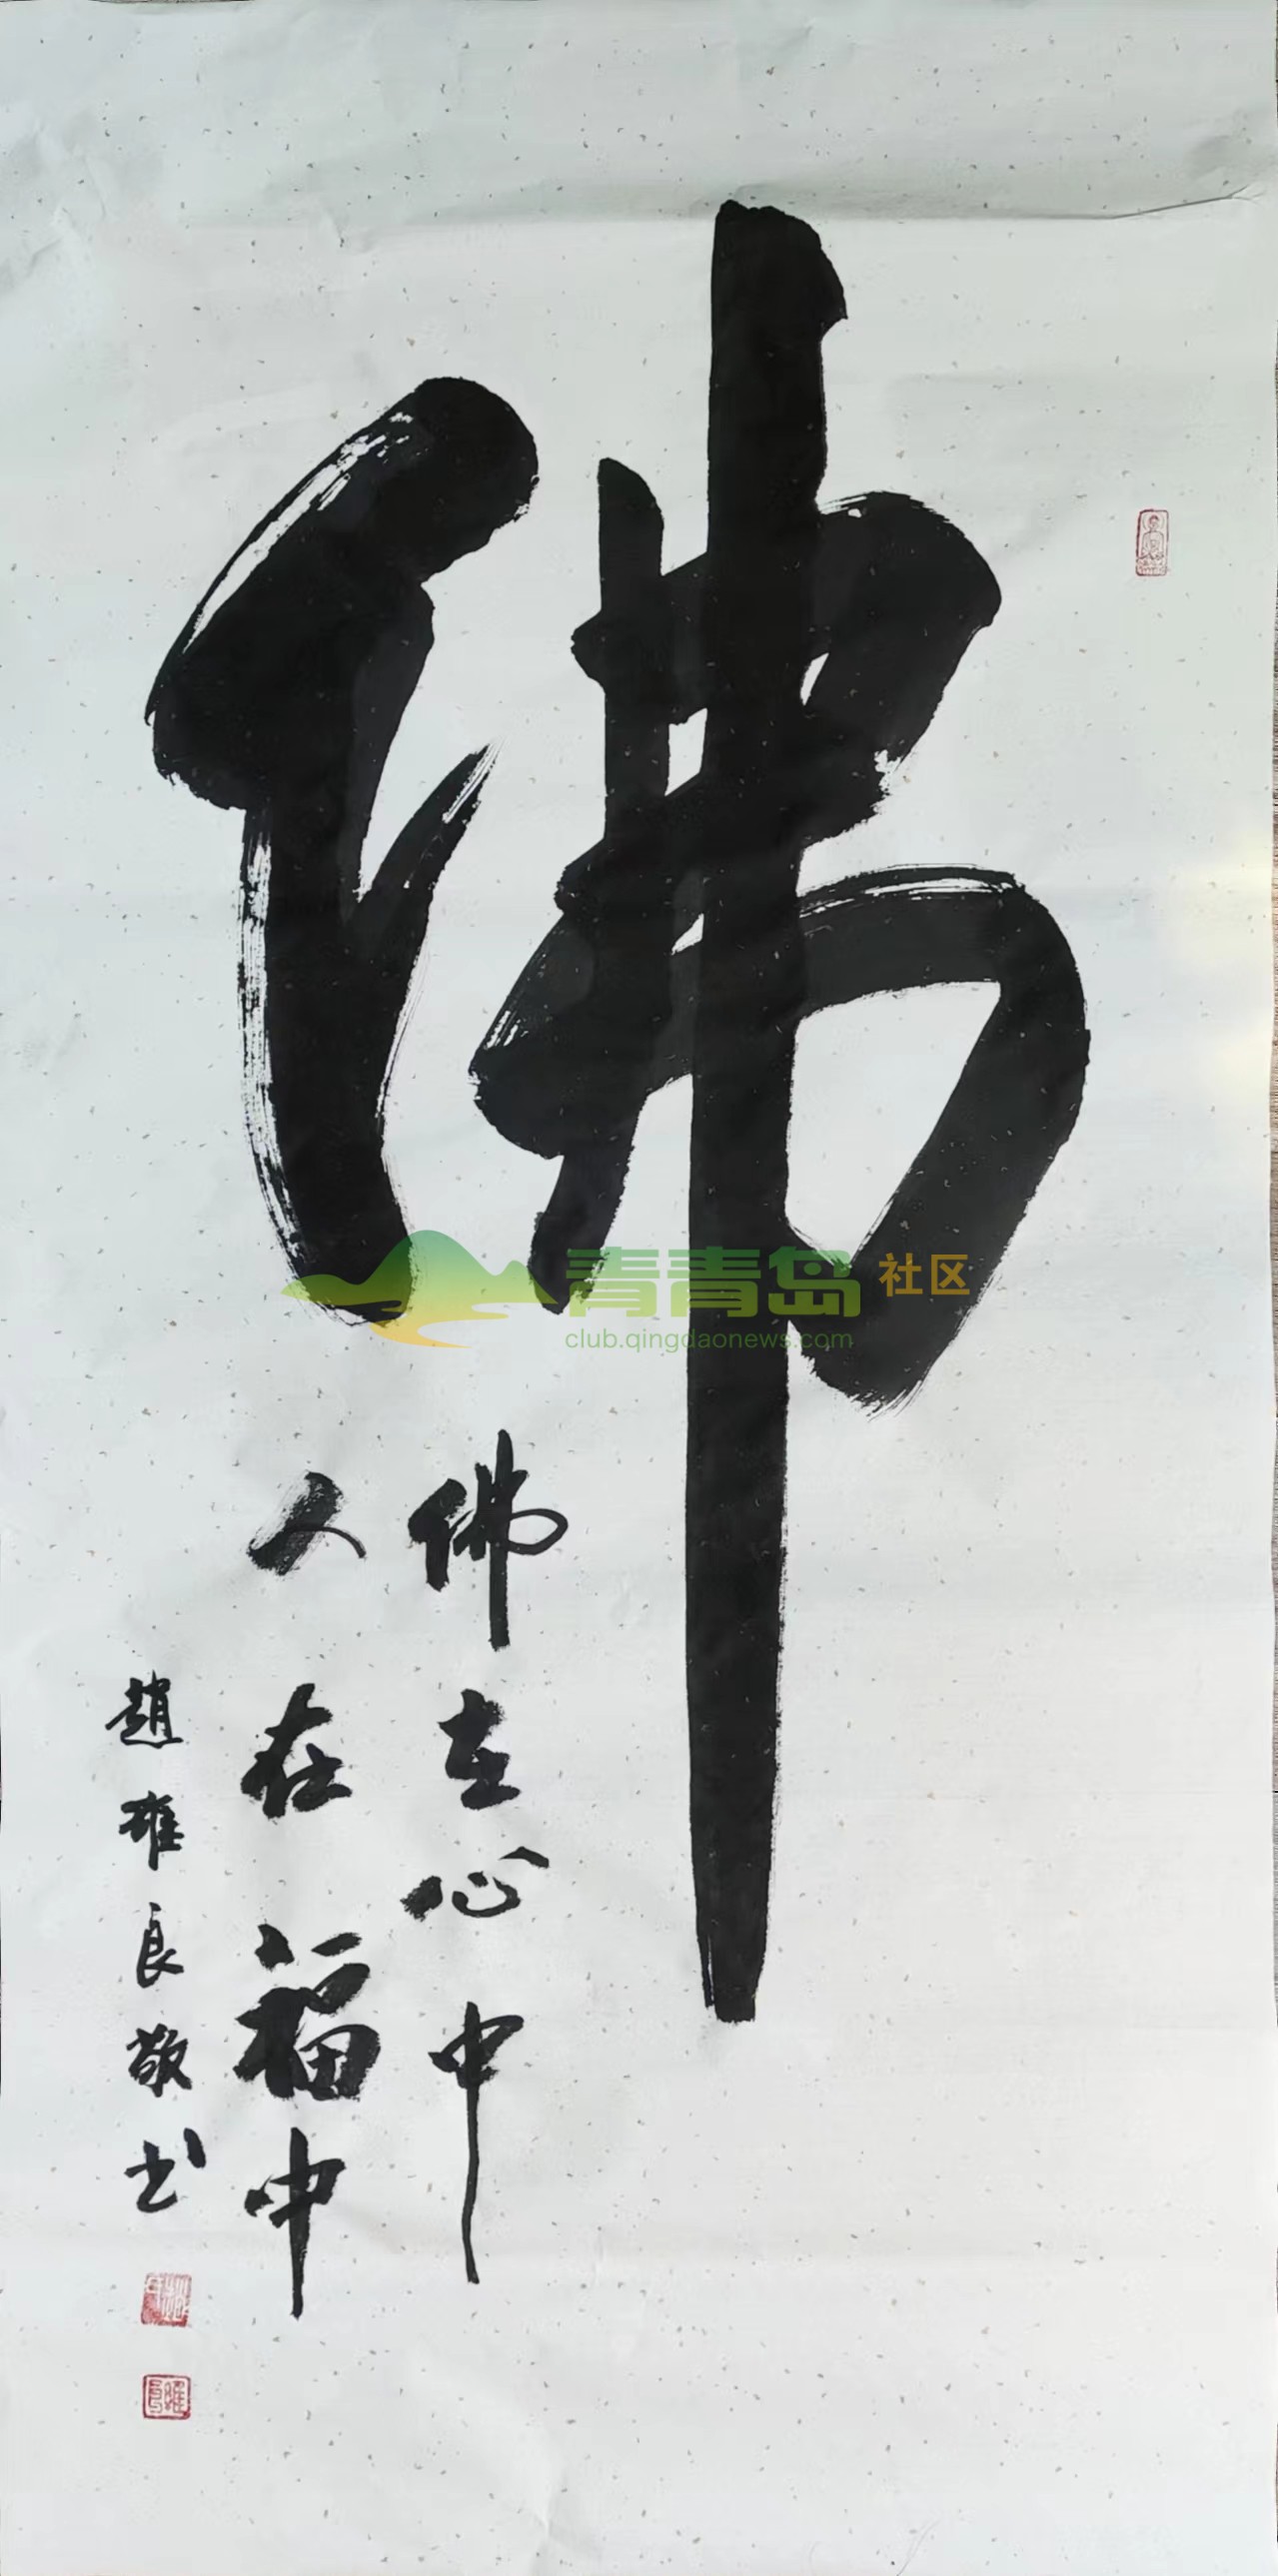 佛
佛在心中
人在福中
趙雍良敬书
青青岛社区
club.qingdaonews.com